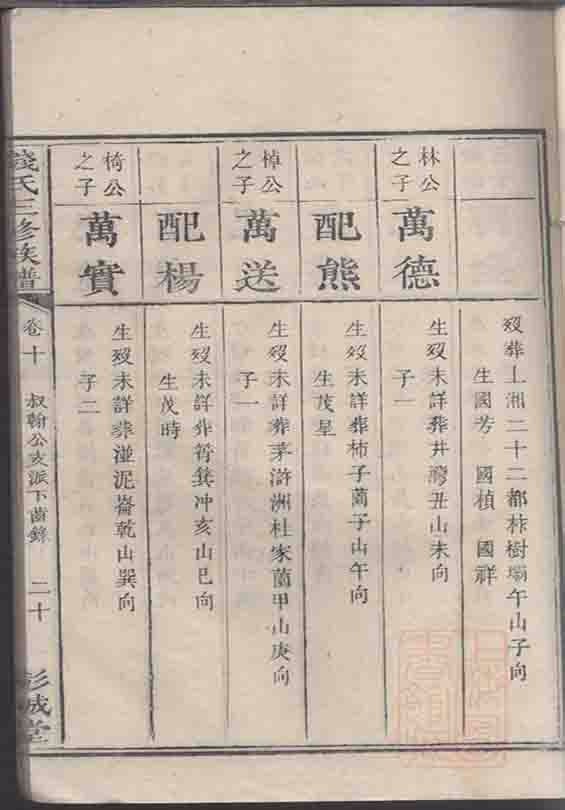 歿葬上湘二十二都柞樹壩午山子向
生國芳 國楨 國祥
林公之子
萬德
生歿未詳葬井灣丑山未向
子一
配熊
生歿未詳葬柿子薗子山午向
生茂星
棹公之子
萬送
生歿未詳葬茅滸洲杜家薗甲山庚向
子一
配楊
生歿未詳葬筲箕冲亥山巳向
生茂時
椅公之子
萬實
生歿未詳葬湴泥崙乾山巽向
子二
錢氏三修族譜
卷十
叔翰公支派下齒錄
二十
彭城堂